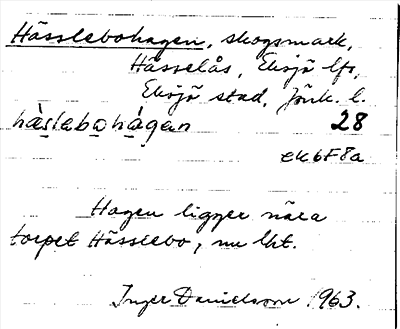 Hässlebohagen, skogsmark,
Hässelås, Eksjö lfs,
Eksjö stad, Jönk. l.
hàslabohágan 28
ek 6F8a
Hagen ligger nära
torpet Hässlebo, nu lht.
Inger Danielsson 1963.